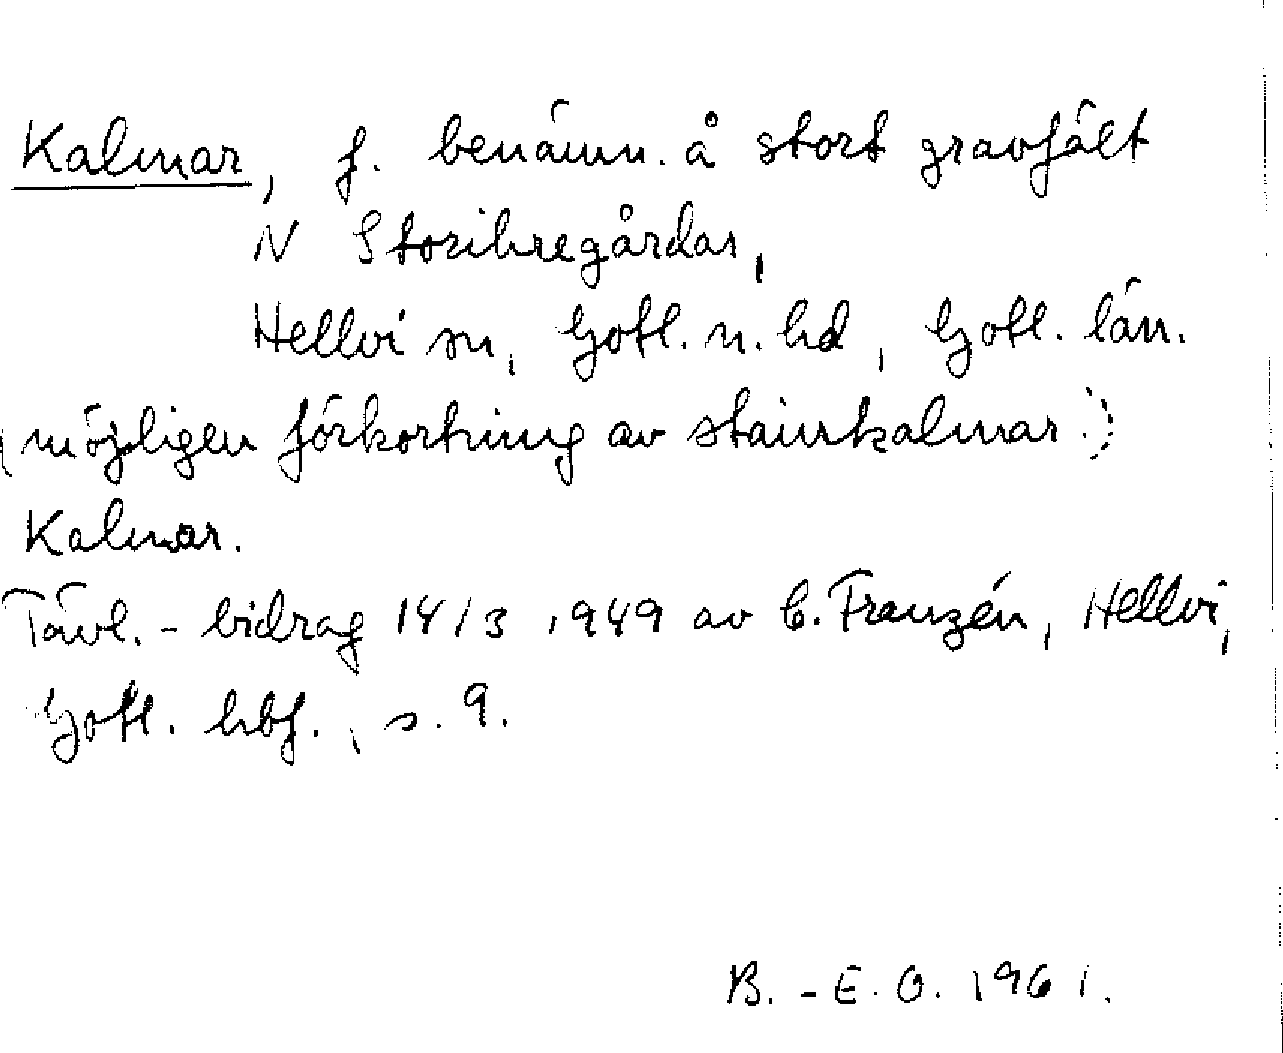 Kalmar, f. benämn. å stort gravfält
N Storihregårdar,
Hellvi sn, Gotl. n. hd, Gotl. län.
(möjligen förkortning av stainkalmar.)
Kalmar.
Tävl.-bidrag 14/3 1949 av C. Franzén, Hellvi,
Gotl. hbf., s. 9.
B.-E. O. 1961.